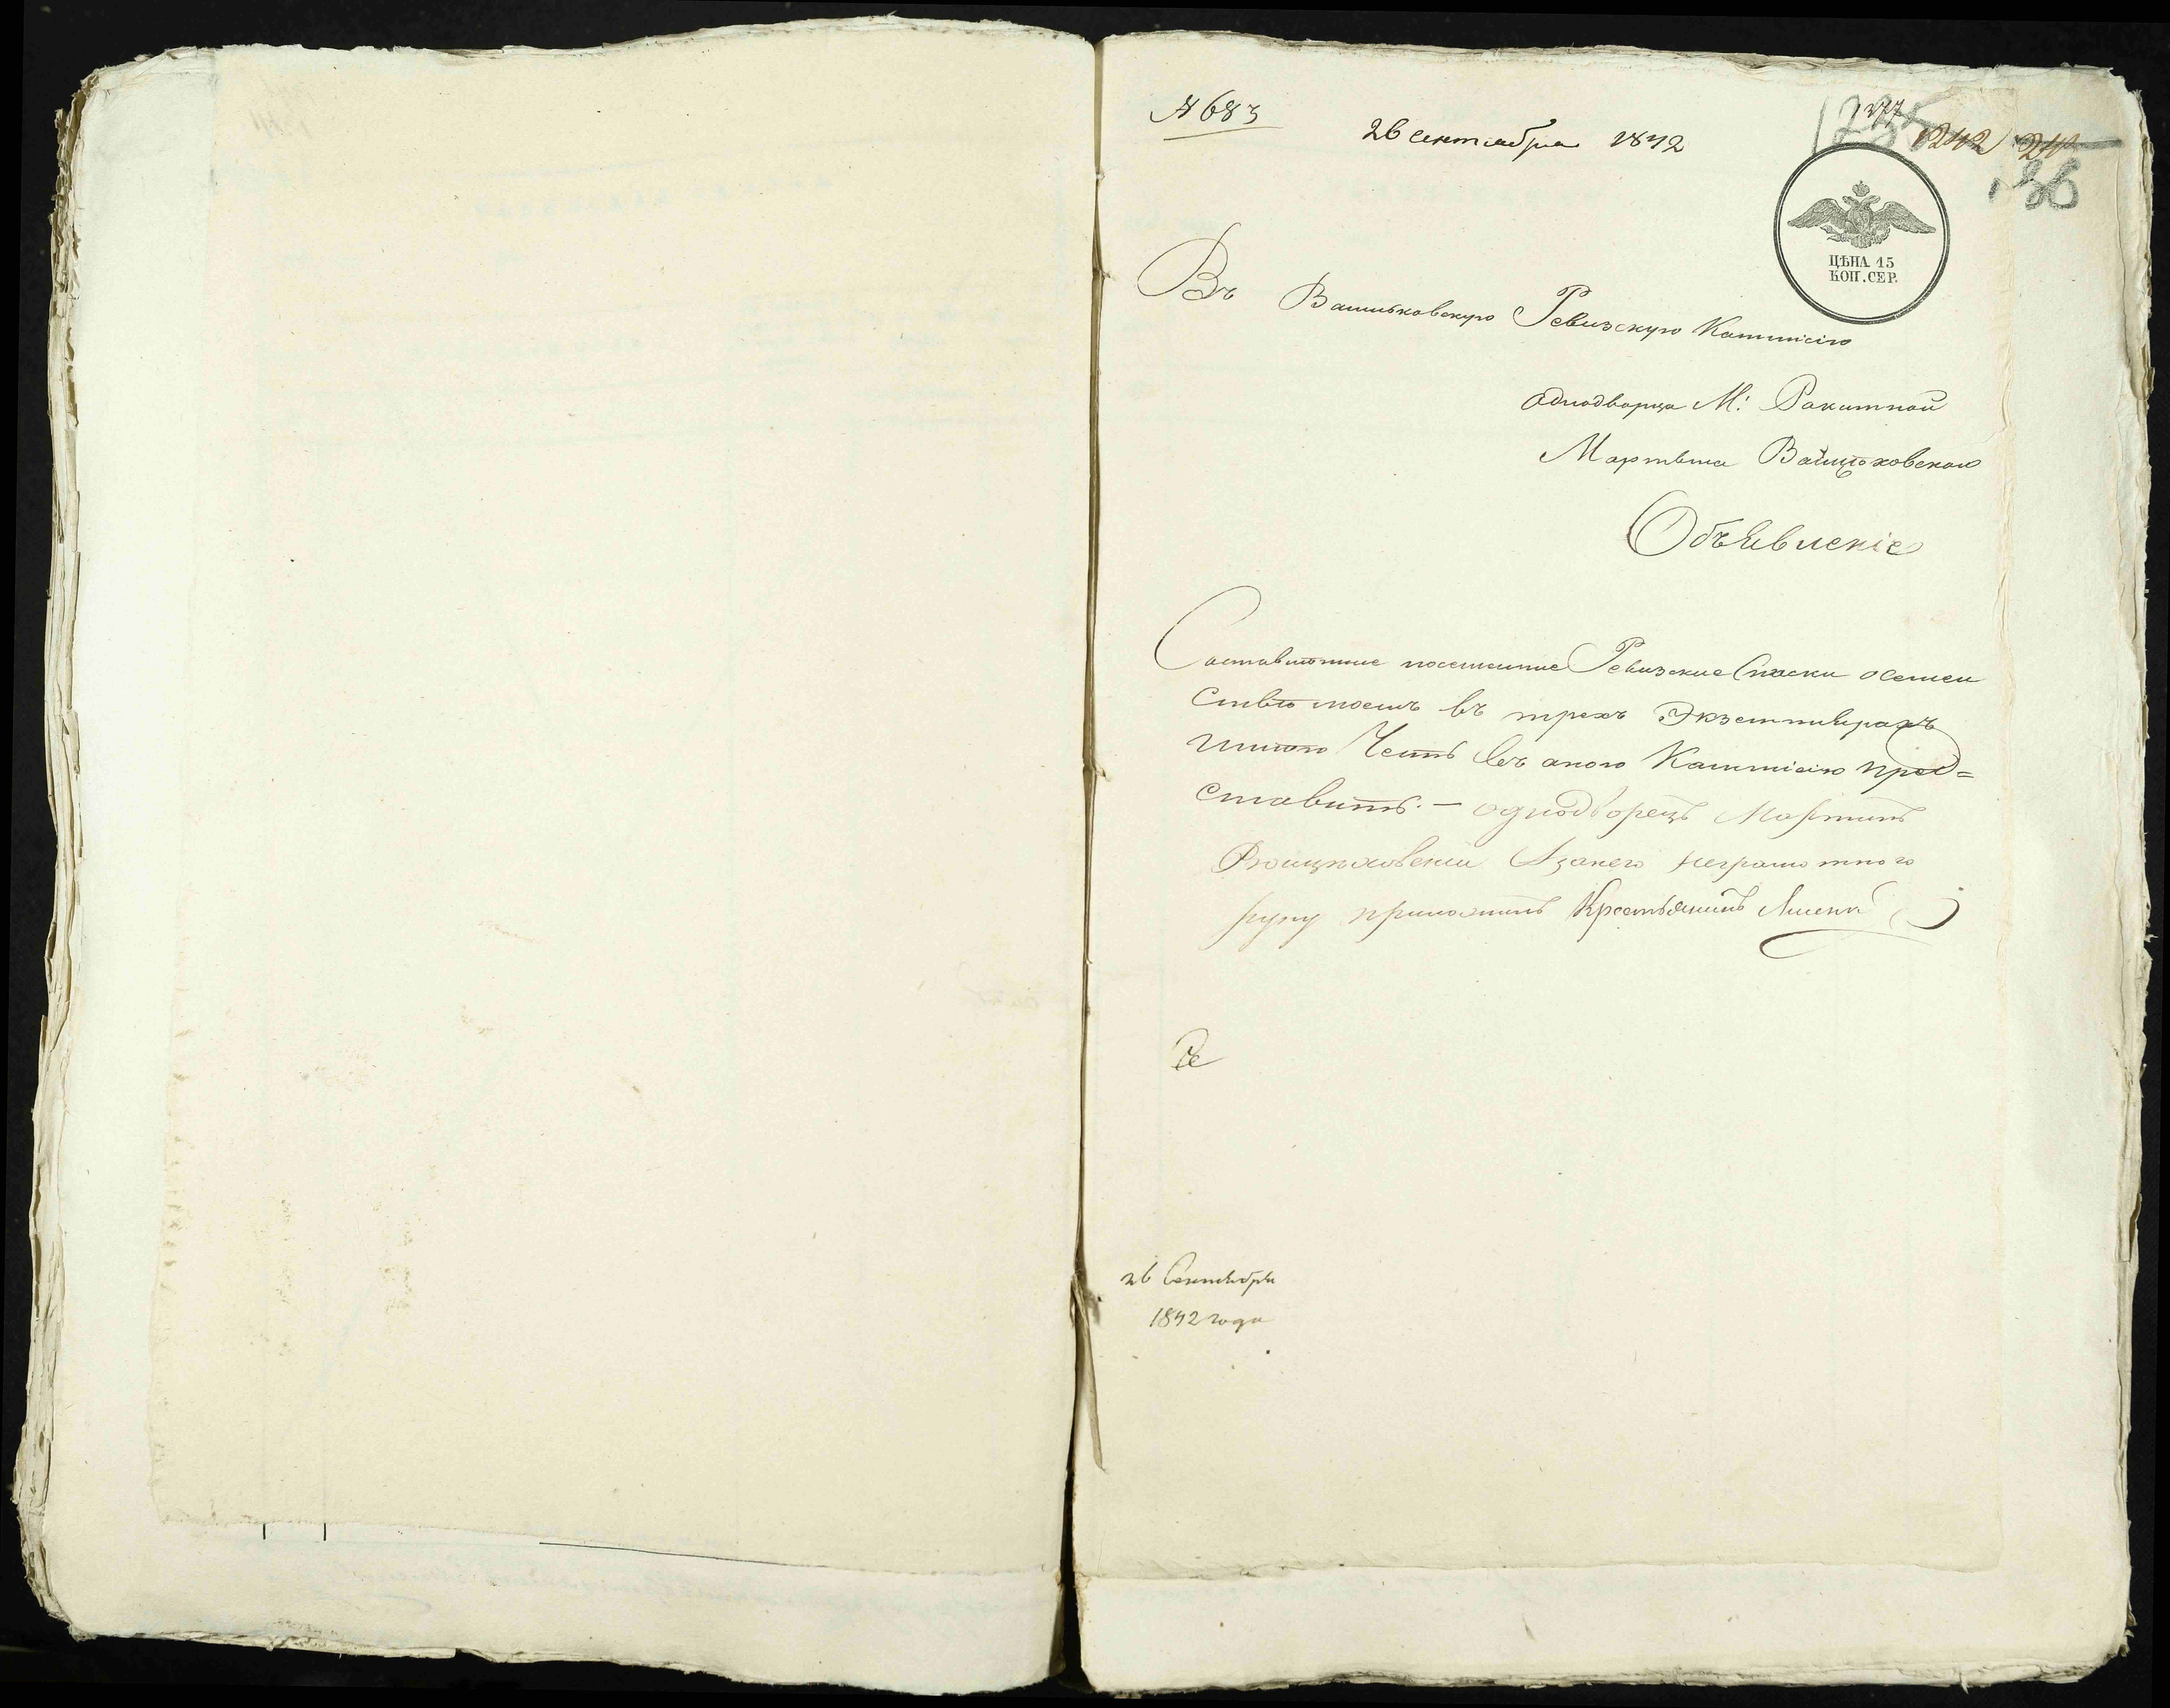 № 683
26 Сентября 1842
1242
136
ЦѢНА 15
КОП. СЕР.
Въ Васильковскую Ревизскую Коммисію
Однодворца М: Ракитной
Мартына Войцѣховскаго
Объявленіе
Составленные посемейные Ревизские Сказки о семей
ствѣ моемъ въ трехъ Экземплярахъ
имею Честь въ оною Коммисію пред=
ставить. — однодворецъ Мартинъ
Войцѣховскій А занего неграмотного
руку приложилъ Крестьянинъ
26 Сентября
1842 года